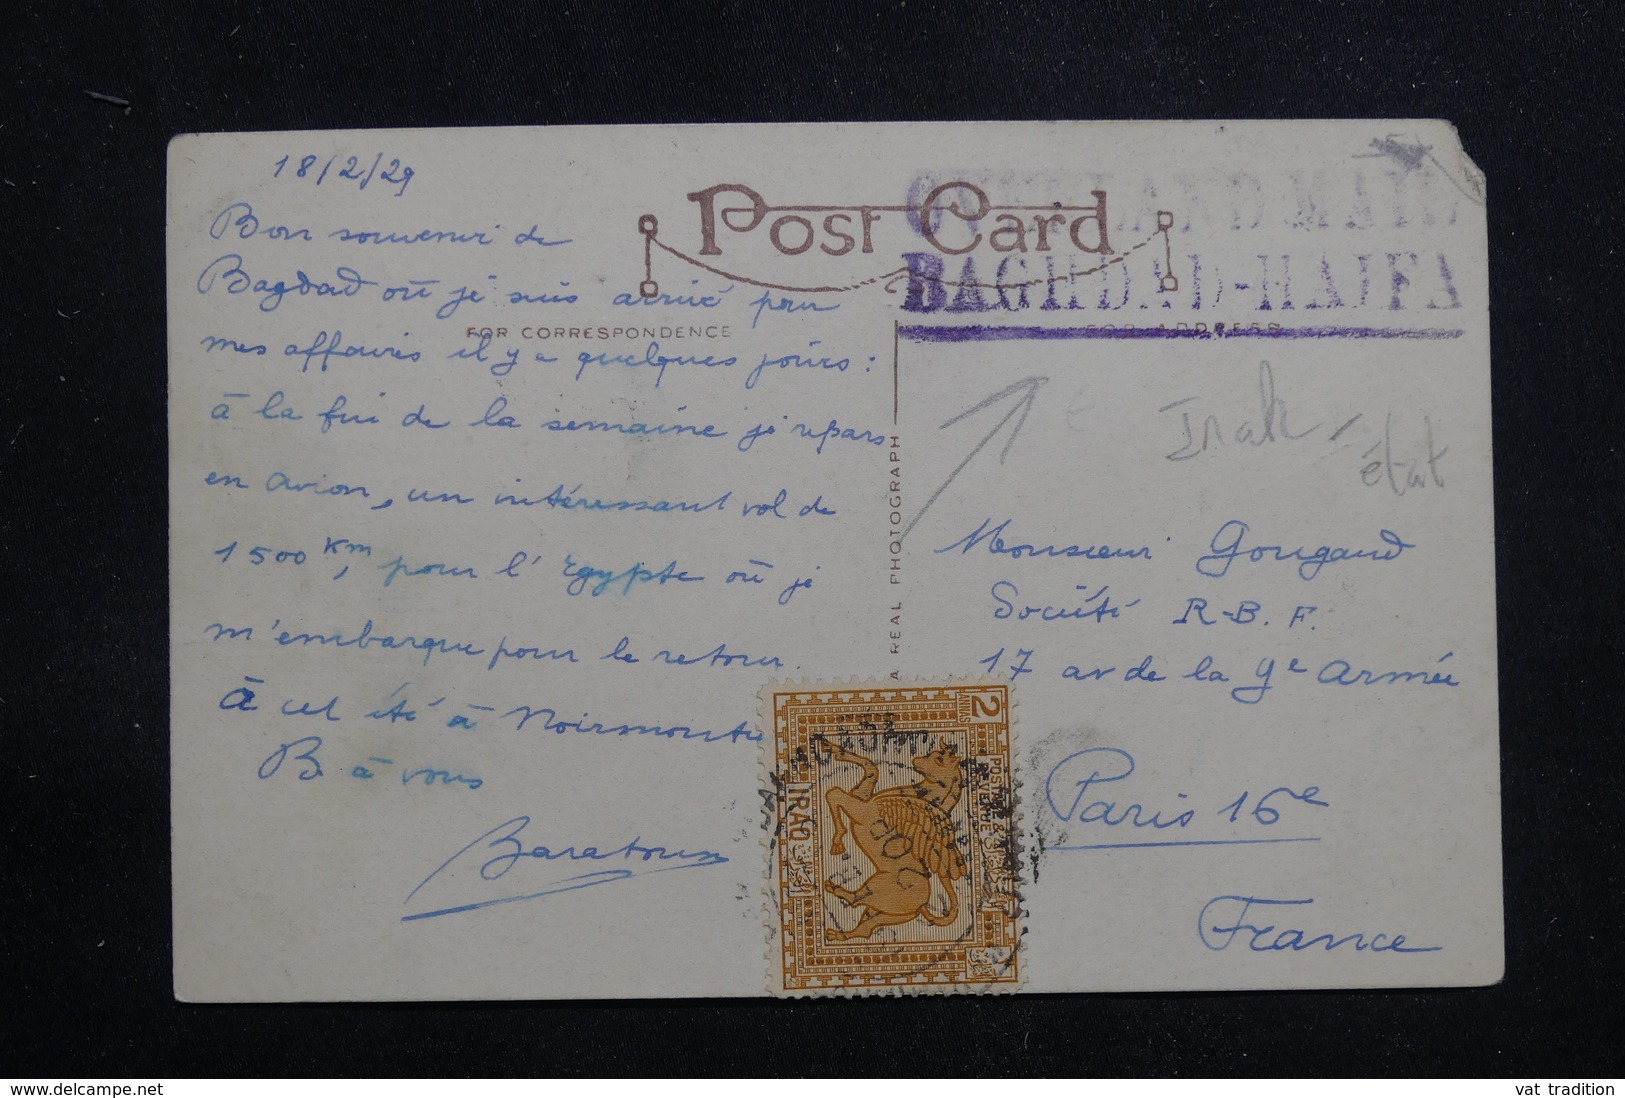 18/2/29
Bon souvenir de
Bagdad où je suis arrivé pour
mes affaires il y a quelques jours :
à la fin de la semaine je repars
en avion, un intéressant vol de
1500 Km, pour l'Egypte où je
m'embarque pour le retour.
à cet été à Noirmoutier
B. à vous
Baratoux
POST CARD
FOR CORRESPONDENCE
FOR ADDRESS
A REAL PHOTOGRAPH
OVERLAND MAIL
BAGHDAD-HAIFA
Irak
état
Monsieur Gougaud
Société R-B. F.
17 av de la Gde Armée
Paris 16e
France
2
ANNAS
POSTAGE &
REVENUE
IRAQ
delcampe.net
vat tradition